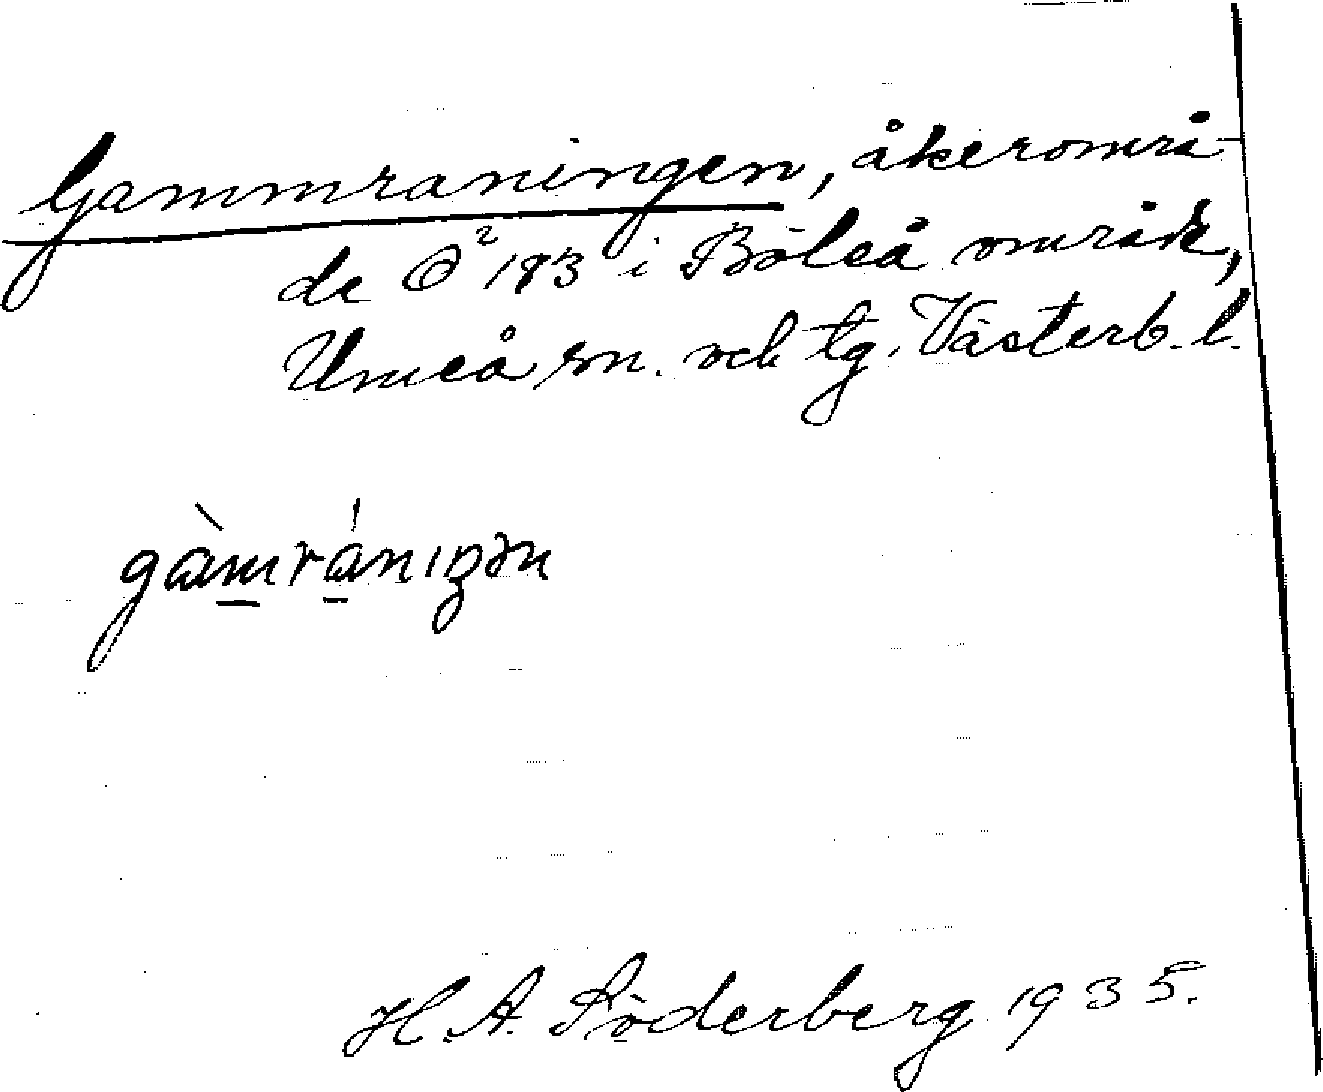 Gammraningen, åkerområ-
de O² 183 i Böleå område,
Umeå sn. och tg. Västerb. l.
gàmránıŋən
H. A. Söderberg 1935.